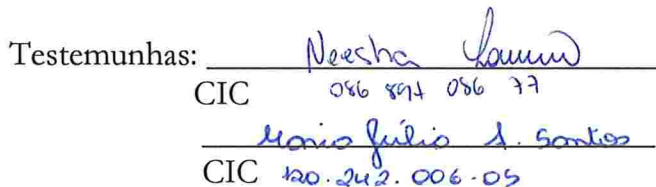 Testemunhas: Neesha
CIC 086 891 086 77
Maria Júlia A. Santos
CIC 120.242.006-05